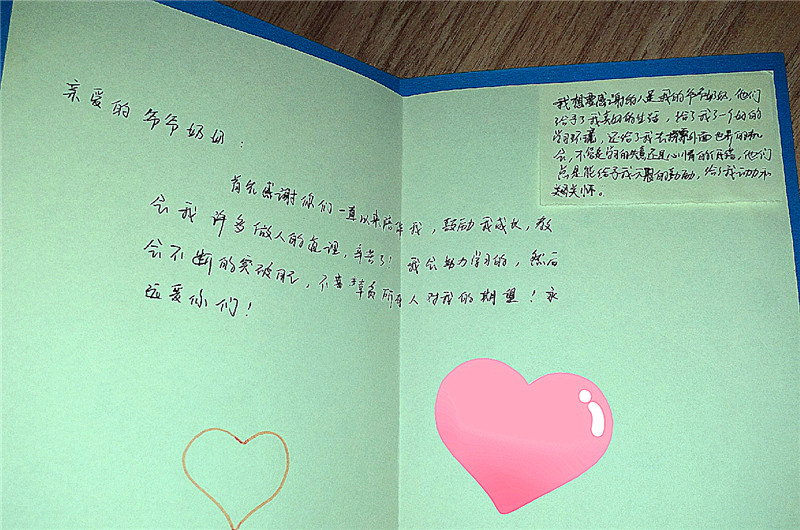 亲爱的爷爷奶奶：
首先感谢你们一直以来陪伴我，鼓励我成长，教
会我许多做人的道理，辛苦了！我会努力学习的，然后
会不断的突破自己，不辜负所有人对我的期望！永
远爱你们！
我想要感谢的人是我的爷爷奶奶，他们
给予了我美好的生活，给了我一个好的
学习环境，还给了我去探索外面世界的机
会，不管是学习的失意还是心情的低落，他们
总是能给予我无限的鼓励，给了我动力和
关怀。